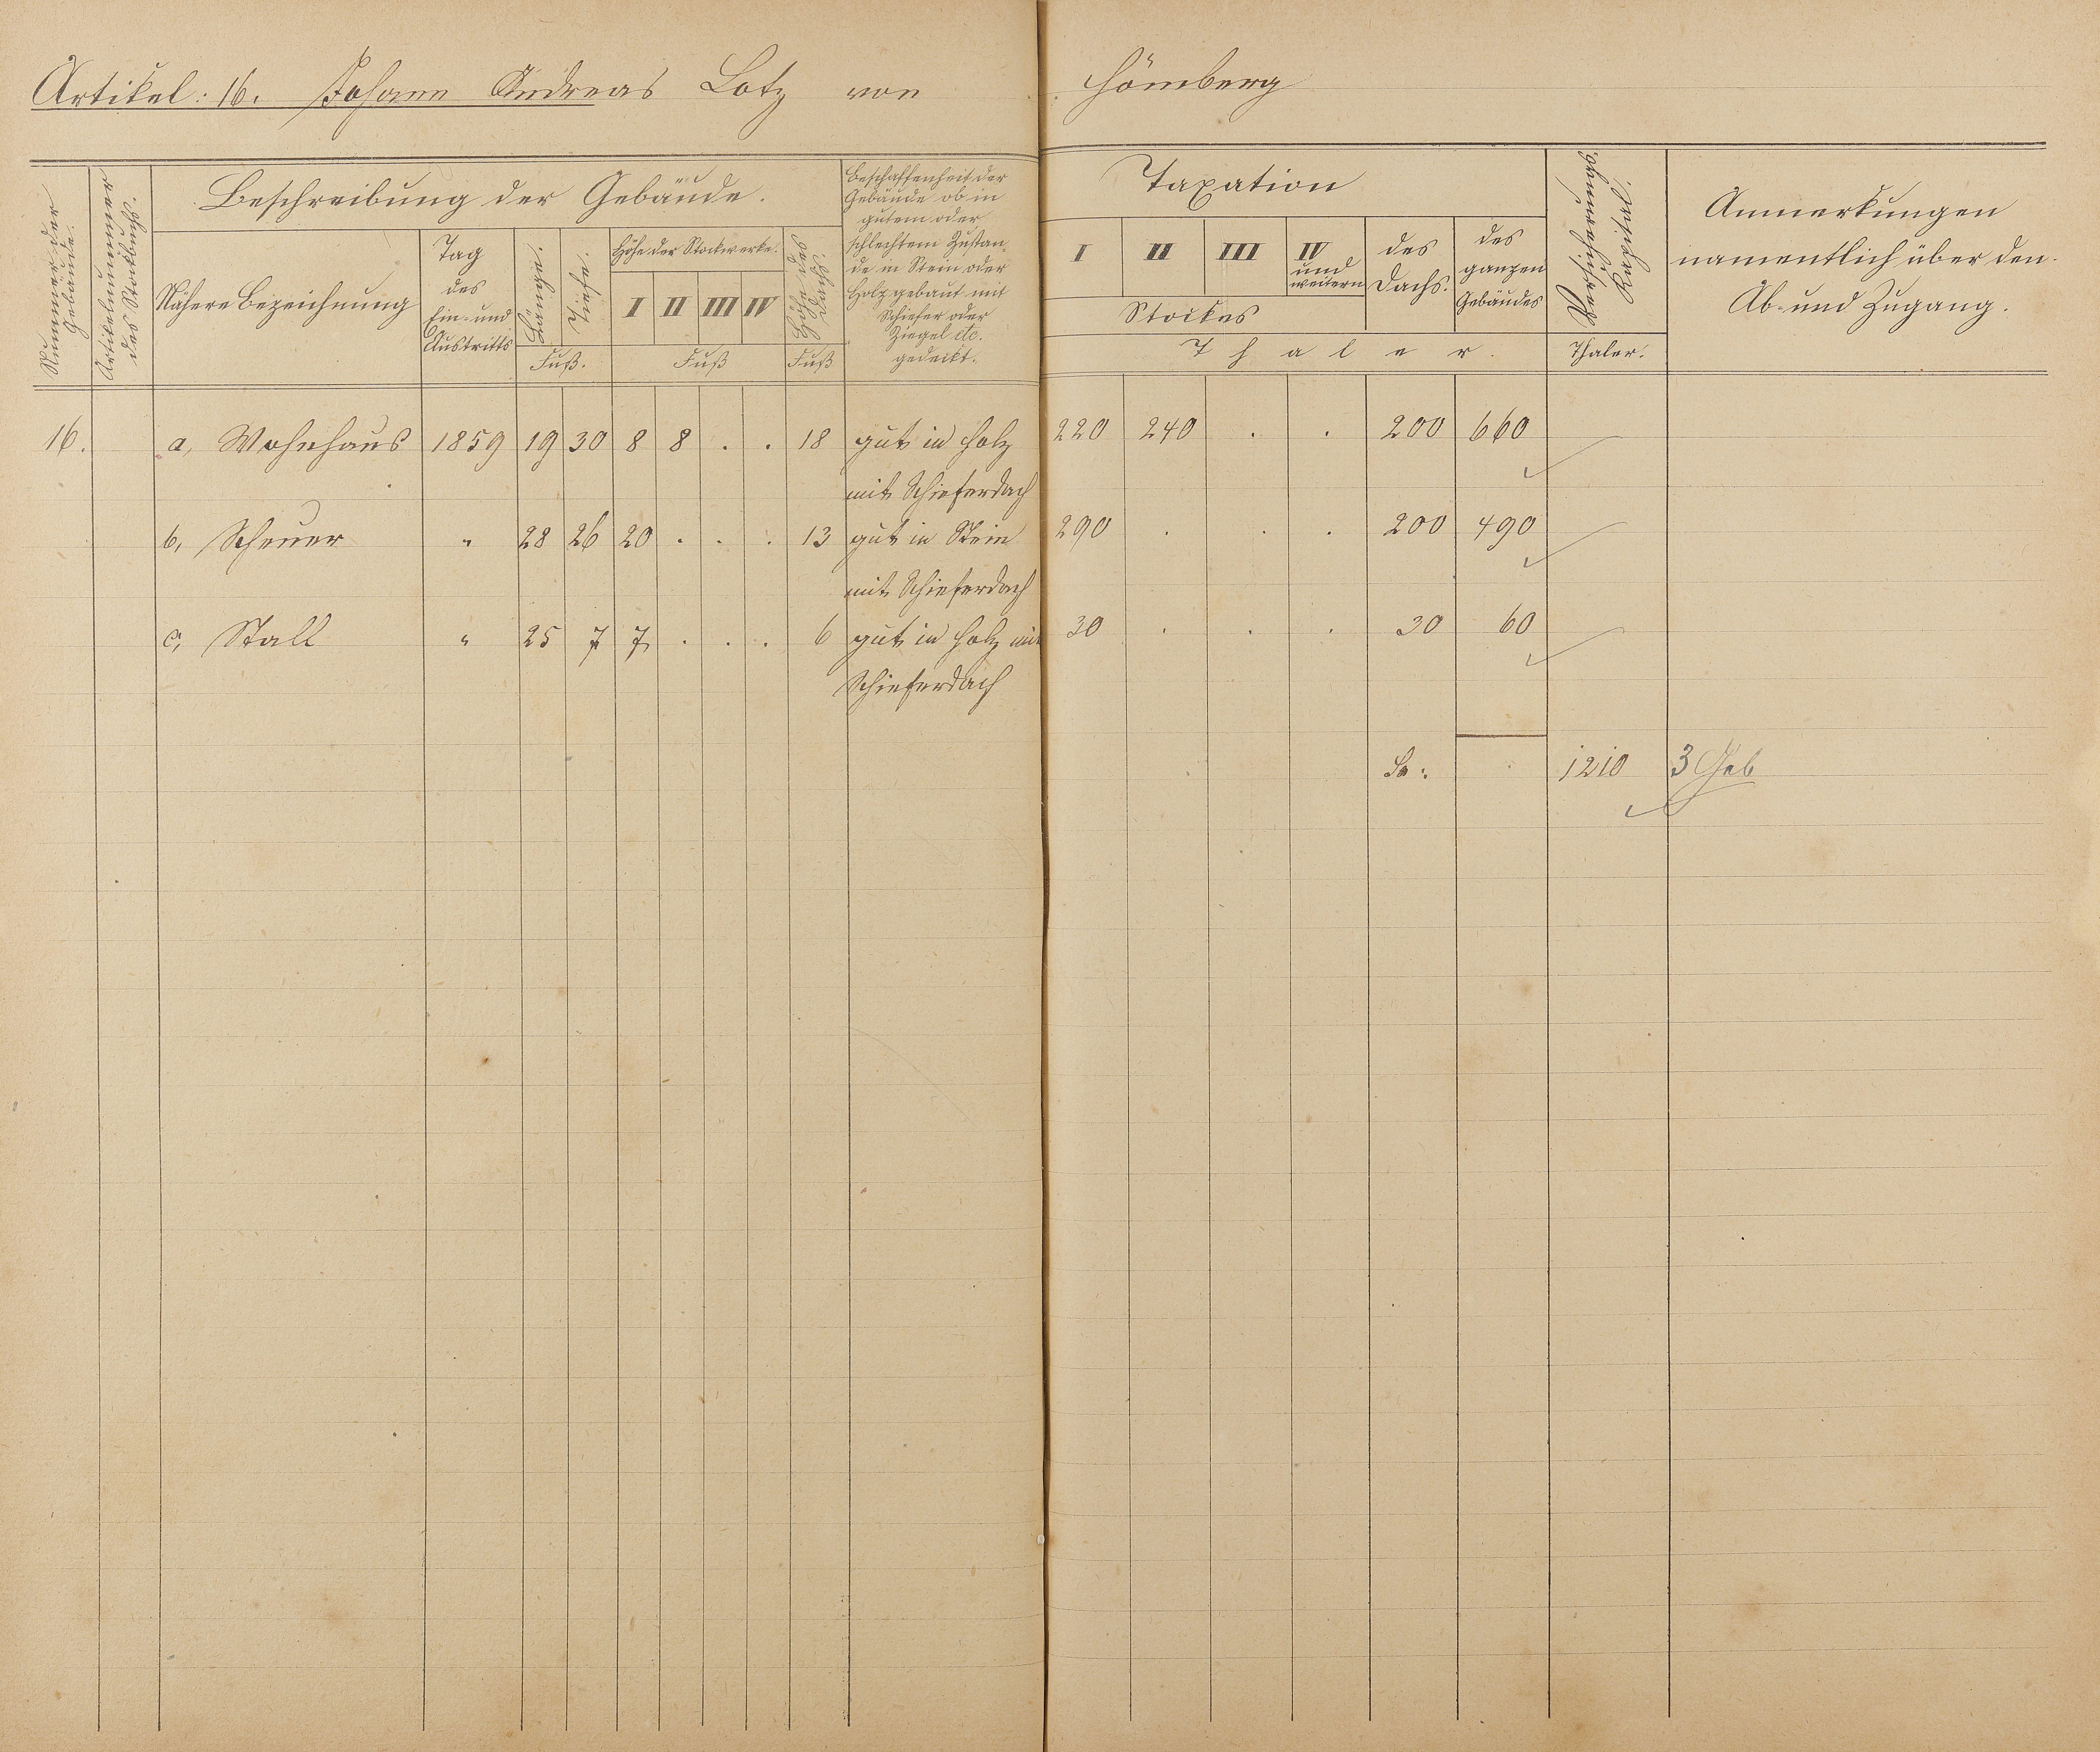 Artikel: 16. Johann Andreas Lotz von Hömberg
Nummer der Gebäude.
Artikelnummer des Stockbuchs.
Beschreibung der Gebäude.
Nähere Bezeichnung
Tag des Ein- und Austritts
Länge.
Tiefe.
Fuß.
Höhe der Stockwerke.
I II III IV
Fuß
Höhe des Dachs.
Fuß
Beschaffenheit der
Gebäude ob in
gutem oder
schlechtem Zustan-
de in Stein oder
Holz gebaut mit
Schiefer oder
Ziegel etc.
gedeckt.
Taxation
I II III IV und weitern
Stockes
des Dachs.
des ganzen Gebäudes
Thaler.
Versicherungs Kapital.
Thaler.
Anmerkungen
namentlich über den
Ab- und Zugang.
16. a, Wohnhaus 1859 19 30 8 8 . . 18 gut in Holz 220 240 . . 200 660
mit Schieferdach
b, Scheuer " 28 26 20 . . . 13 gut in Stein 290 . . . 200 490
mit Schieferdach
c, Stall " 25 7 7 . . . 6 gut in Holz mit 30 . . . 30 60
Schieferdach
Sa: 1210 3 Geb